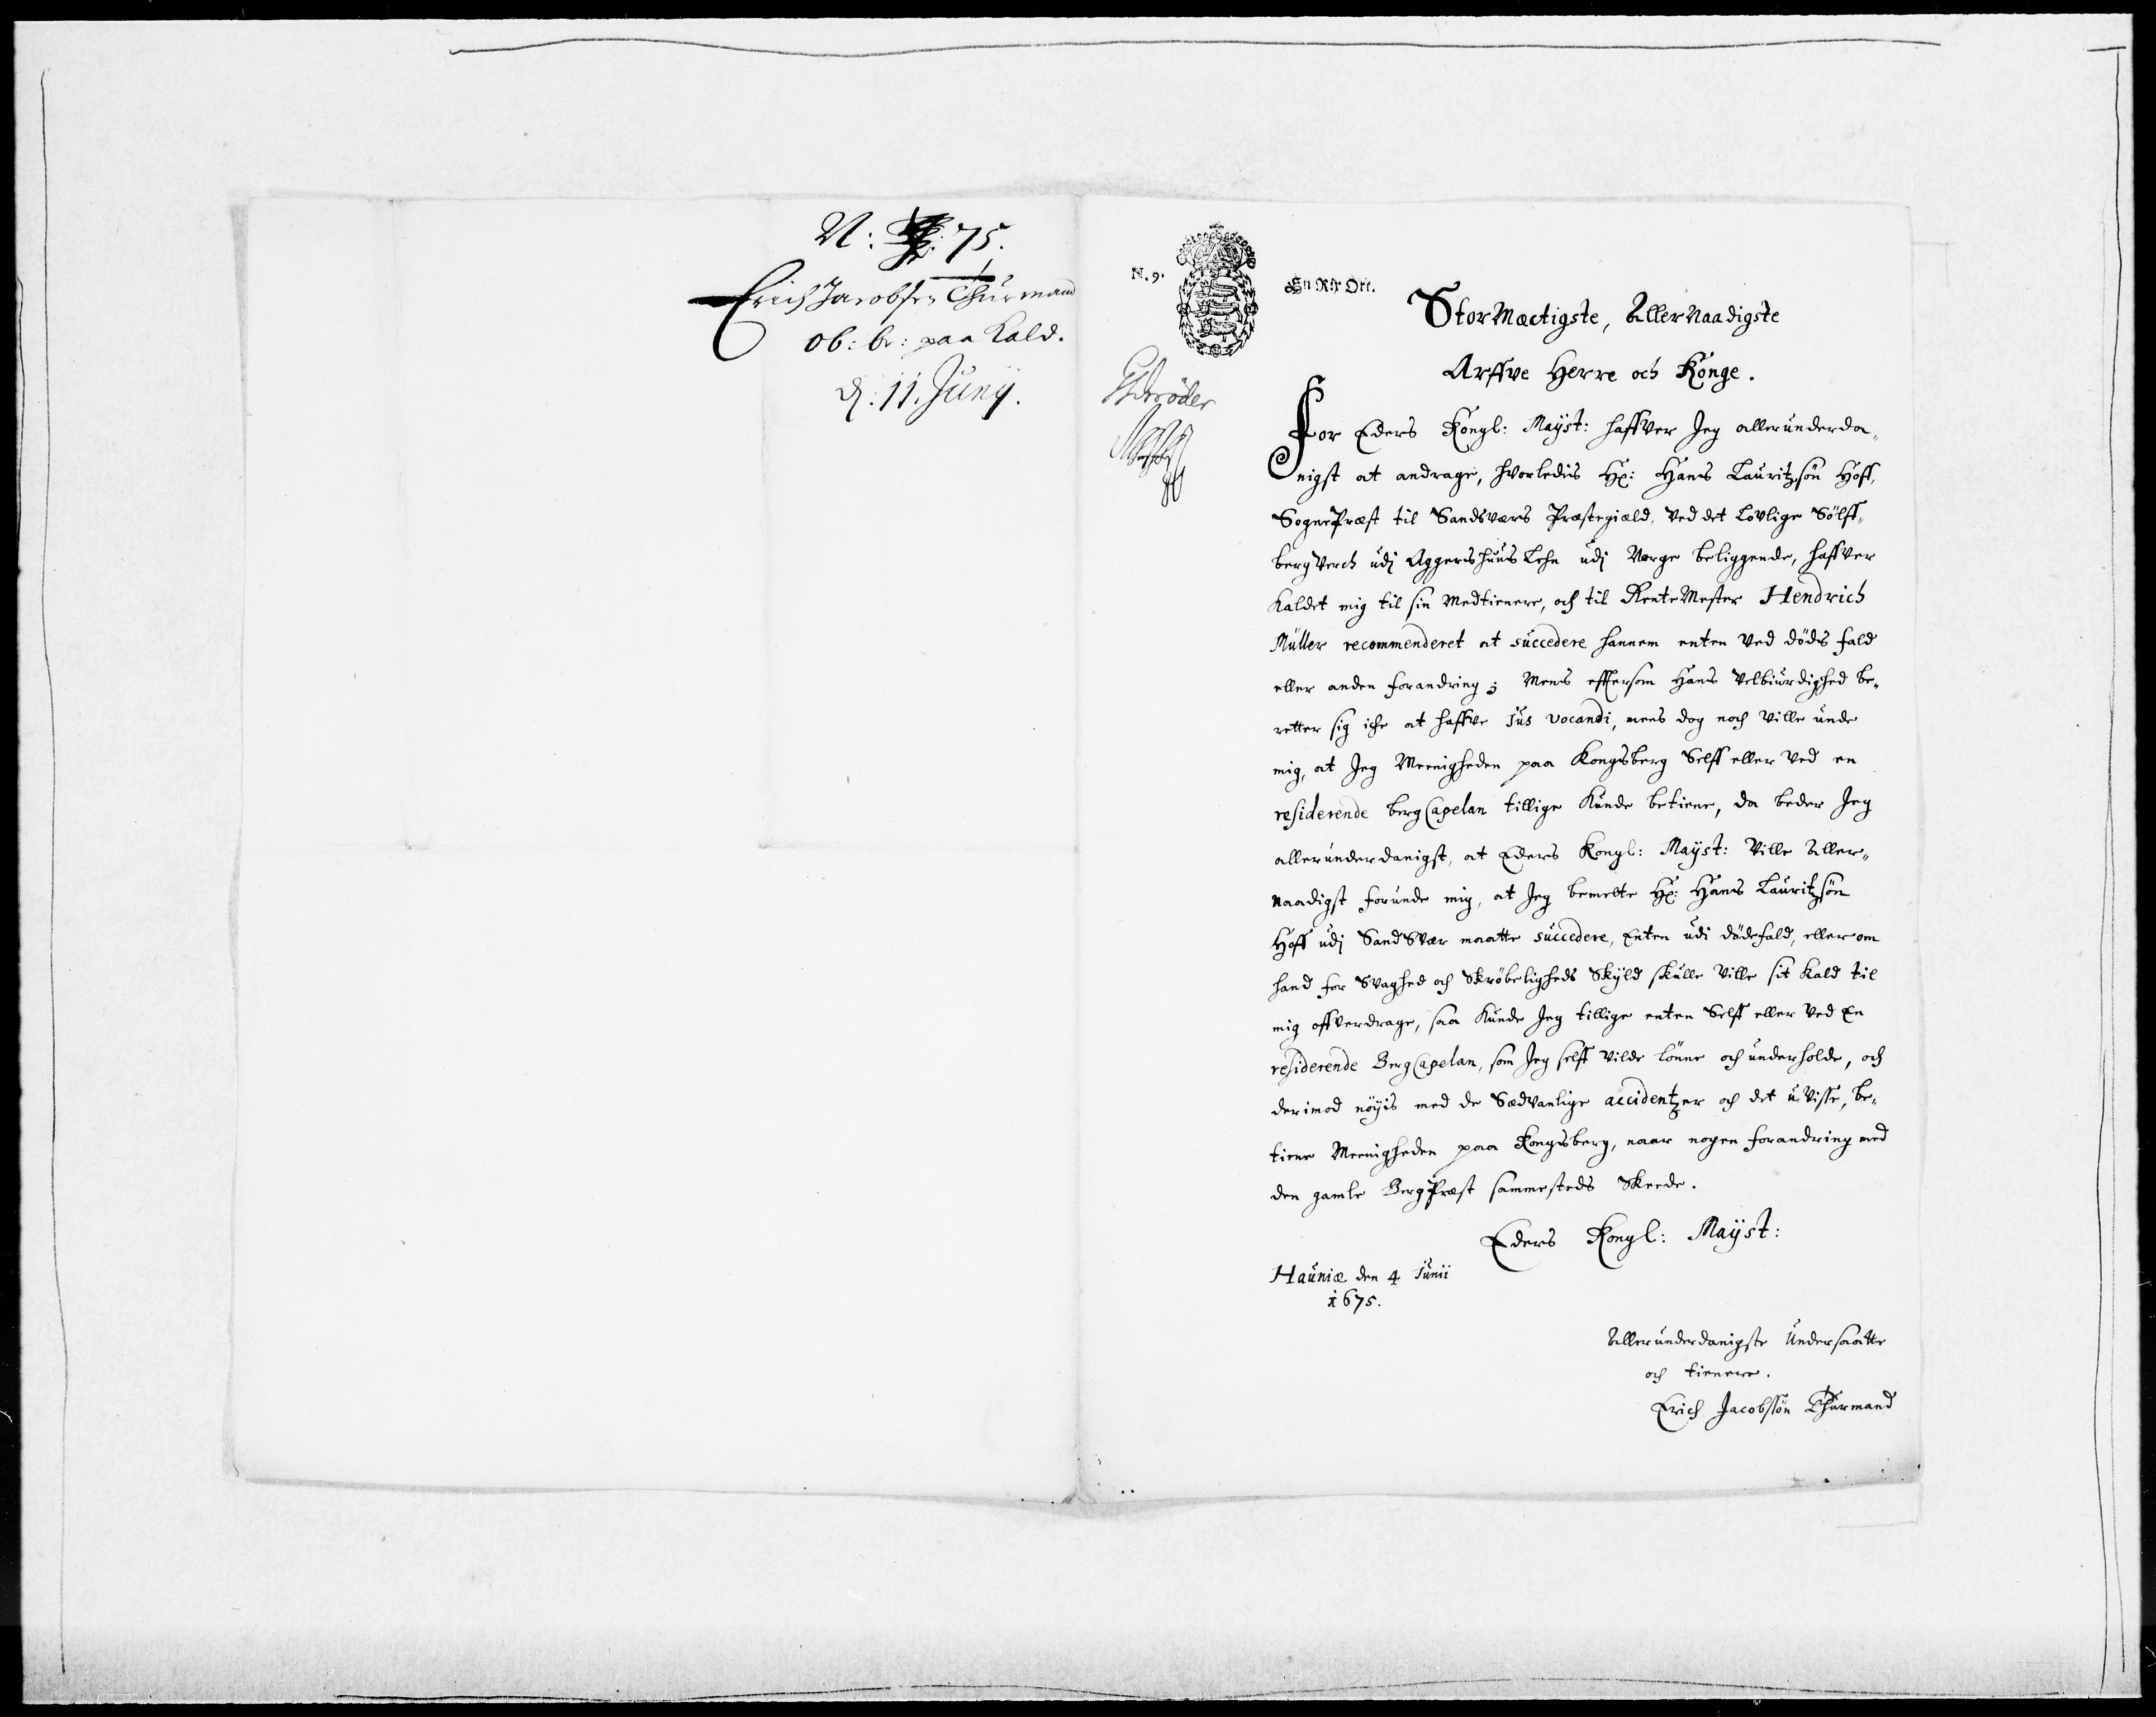 N: 75.
Erich Jacobsen Thurmand
ob: br: paa Kald.
d: 11. Junij.
N. 9.
En Rix Ort.
StorMæctigste, AllerNaadigste
Arffve Herre och Konge.
For Eders Kongl: Mayst: haffver Jeg allerunderda-
nigst at andrage, hvorledis Hr: Hans Lauritzsøn Hoff,
SognePræst til Sandsværs Præstegiæld, ved det Lovlige Sølff-
bergVerch udj Aggershuus Lehn udj Norge beliggende, haffver
Kaldet mig til sin Medtienere, och til RenteMester Hendrich
Müller recommenderet at succedere hannem enten ved døds fald
eller anden forandring; Mens effersom Hans Velbiurdighed be-
retter sig iche at haffve Jus vocandi, mens dog noch ville unde
mig, at Jeg Meenigheden paa Kongsberg Selff eller ved en
residerende bergCapelan tillige Kunde betiene, da beder Jeg
allerunderdanigst, at Eders Kongl: Mayst: Ville Aller-
naadigst forunde mig, at Jeg bemelte Hr: Hans Lauritzsøn
Hoff udj SandSvær maatte succedere, Enten udi dødsfald, eller om
hand for Svaghed och Skrøbeligheds Skyld skulle Ville sit Kald til
mig offverdrage, saa Kunde Jeg tillige enten Selff eller ved En
residerende BergCapelan, som Jeg selff vilde lønne och underholde, och
derimod nøyis med de Sædvanlige accidentzer och det u-Visse, be-
tiene Meenigheden paa Kongsberg, naar nogen forandring med
den gamle BergPræst sammesteds Skeede.
Eders Kongl: Mayst:
Hauniæ den 4 Junii
1675.
Allerunderdanigste Undersaatte
och tienere.
Erich Jacobssøn Thurmand